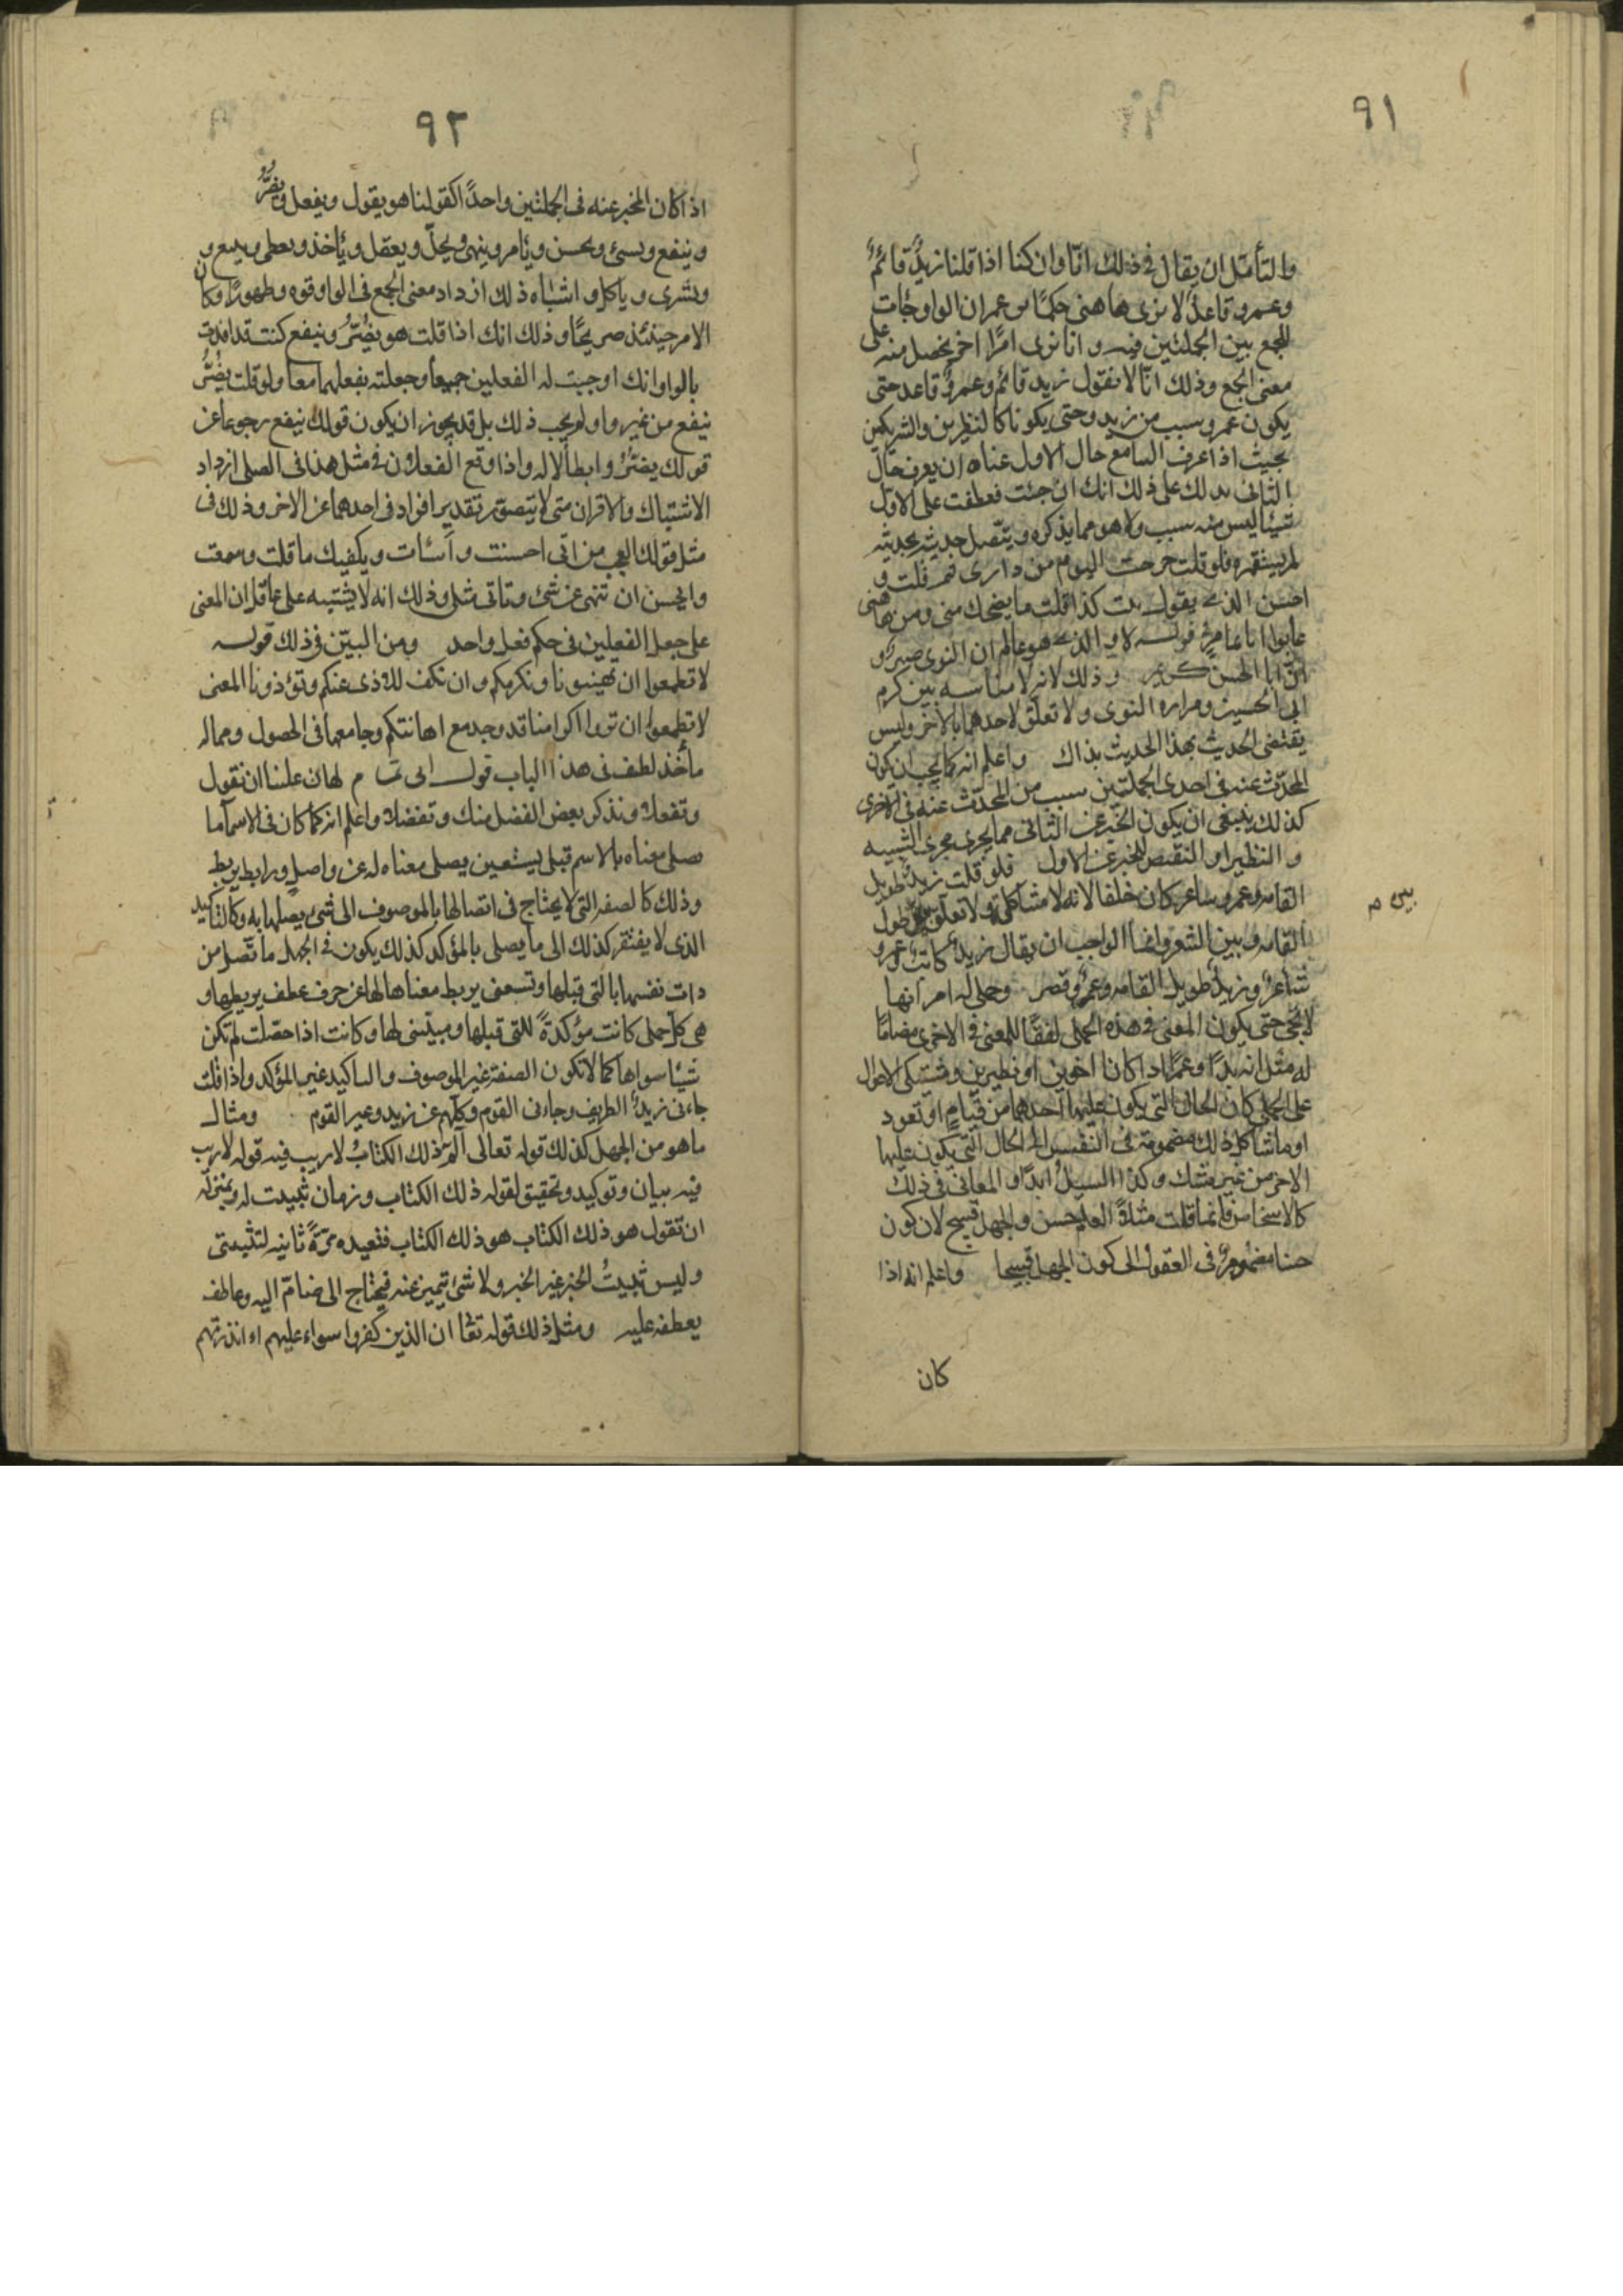 ٩١
والتأمّل ان يقال فى ذلك انّا وان كنا اذا قلنا زيدٌ قائمٌ
وعمرو قاعدٌ لا نرى هاهنى حكمًا س عمران الواو جات
للجمع بين الجملتين فيه و انا نرى امرًا اخر يحصل منه على
معنى الجمع وذلك انّا لا نقول زيد قائم وعمرو قاعد حتى
يكون عمرو سبب من زيد وحتى يكونا كالنظيرين والشريكين
بحيث اذا عرف السامع حال الاول عناه ان يعرف حال
الثانى يدلك على ذلك انك ان جئت فعطفت على الاول
شيئا ليس منه سبب ولا هو مما يذكره ويتّصل حديثه بحديثه
لم يستقم فلو قلت خرجت اليوم من دارى ثم قلت و
احسن الذى يقول بيت كذا قلت ما يضحك منى ومن هاهنى
عابوا ابا تمام فى قوله لا والذى هو عالم ان النوى صبرٌ و
انّ ابا الحسن كريم وذلك لانه لا مناسبه بين كرم
ابى الحسين ومراره النوى ولا تعلّق لاحدهما بالاخر وليس
يقتضى الحديث بهذا الحديث بذاك واعلم انه كما يجب ان يكون
المحدّث عنه فى احدى الجملتين سبب من المحدّث عنه فى الاخرى
كذلك ينبغى ان يكون الخبر عن الثانى مما يجرى مجرى الشبيه
و النظير او النقيض للخبر عن الاول فلو قلت زيدٌ طويل
القامه وعمرو شاعر كان خلفا لانه لا مشاكله ولا تعلّق بين طول
بين م
القامه وبين الشعر وانما الواجب ان يقال زيدٌ كاتب وعمرو
شاعرٌ وزيدٌ طويل القامه وعمرٌو قصر وجملة امر انها
لا تجى حتى يكون المعنى فى هذه الجملى لفقًا للمعنى فى الاخرى مضامًا
له مثل انه زيدًا وعمرًا اذا كانا اخوين او نظيرين ومشتبكى الاحوال
على الجملى كان الحال التى يكون عليها احدهما من قيامٍ او قعود
اوما شاكل ذلك مضمومة فى النفس الى الحال التى يكون عليها
الاخر من غير شك وكذا السبيل ابدًا و المعانى فى ذلك
كالاشخاص فانما قلت مثلاً العلم حسن والجهل قبيح لان كون
حسنا مضموم فى العقول الى كون الجهل قبيحا واعلم انه اذا
كان
٩٢
اذا كان المخبر عنه فى الجملتين واحدًا كقولنا هو يقول ويفعل ويضرُّ
وينفع ويسئ ويحسن ويأمر وينهى ويحلّ ويعقل ويأخذ ويعطى ويبيع و
ويشرى و ياكل و اشباه ذلك ازداد معنى الجمع فى الواو قوه وظهورًا وكان
الامر حينئذ صريحًا وذلك انك اذا قلت هو يضُرُّ وينفع كنت قد افدت
بالواو انك اوجبت له الفعلين جميعاً وجعلته يفعلهما معا ولو قلت يضُرُّ
ينفع من غير واو لم يجب ذلك بل قد يجوز ان يكون قولك ينفع رجوعاً عن
قولك يضرُّ وابطالا له واذا وقع الفعلان فى مثل هذا فى الصلى ازداد
الاشتباك والاقران متى لا يتصوّر تقدير افراد فى احدهما عن الاخر وذلك فى
مثل قولك العجب من انى احسنت و أسئات ويكفيك ما قلت وسمعت
وايحسن ان تنهى عن شئ وتاتى مثلى وذلك انه لا يشتبه على عاقل ان المعنى
على جعل الفعلين فى حكم فعل واحد ومن البيّن فى ذلك قوله
لا تطمعوا ان تهينونا ونكرمكم وان نكف للاذى عنكم وتؤذونا المعنى
لا تطمعوا ان تروا اكرامنا قد وجد مع اهانتكم وجامعها فى الحصول ومماله
مأخذ لطف فى هذا الباب قول ابى تمام لهان علينا ان نقول
وتفعلا ونذكر بعض الفضل منك وتفضلا واعلم انه كما كان فى الاسما ما
يصلى معناه بالاسم قبلى يستغين يصلى معناه له عن واصلٍ ورابطٍ يربط
وذلك كالصفه التى لا يحتاج فى اتصالها بالموصوف الى شئ يصلها به وكالتأكيد
الذى لا يفتقر كذلك الى ما يصلى بالمؤكد كذلك يكون فى الجمله ما تتّصل من
ذات نفسها بالتى قبلها وتسعى بربط معناها لها عن حرف عطف يربطها و
هى كل جملى كانت مؤكدةً للتى قبلها ومبيّنى لها وكانت اذا حصّلت لم تكن
شيئا سواها كما لا تكون الصفة غير الموصوف والتاكيد غير المؤكد واذا قلت
جاءنى زيدٌ الظريف وجاءنى القوم وكلّهم عن زيد وغير القوم ومثال
ما هو من الجمل كذلك قوله تعالى آلٓمٓ ذلك الكتابُ لا ريب فيه قوله لا ريب
فيه بيان وتوكيد وتحقيق لقوله ذلك الكتاب وزمان تثبيت له وبمنزلة
ان تقول هو ذلك الكتاب هو ذلك الكتاب فتعيده مرّةً ثانيه لتثبيتى
وليس تثبيتُ الخبر غير الخبر ولا شئ يتميز عنه فيحتاج الى ضامّ اليه وعاطف
يعطفه عليه ومثل ذلك قوله تعا ان الذين كفروا سواء عليهم ءانذرتهم